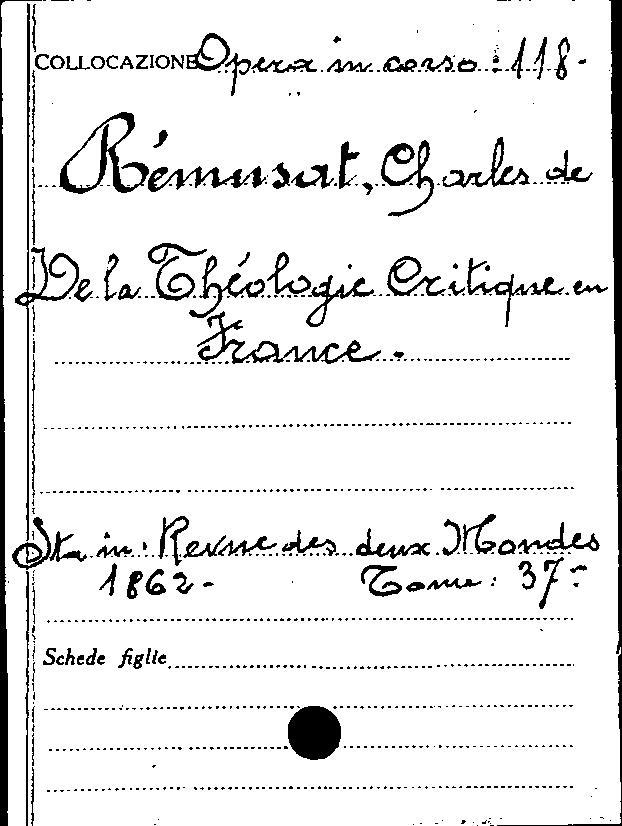 COLLOCAZIONE Opera in corso : 118-
Rémusat, Charles de
De la Théologie Critique en
France.
Sta in: Revue des deux Mondes
1862- Tome: 37-
Schede figlie